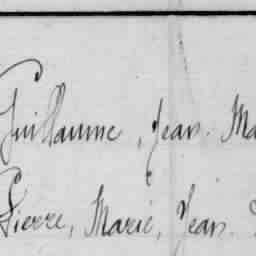 Guillaume, Jean. Ma
Pierre, Marie, Jean.